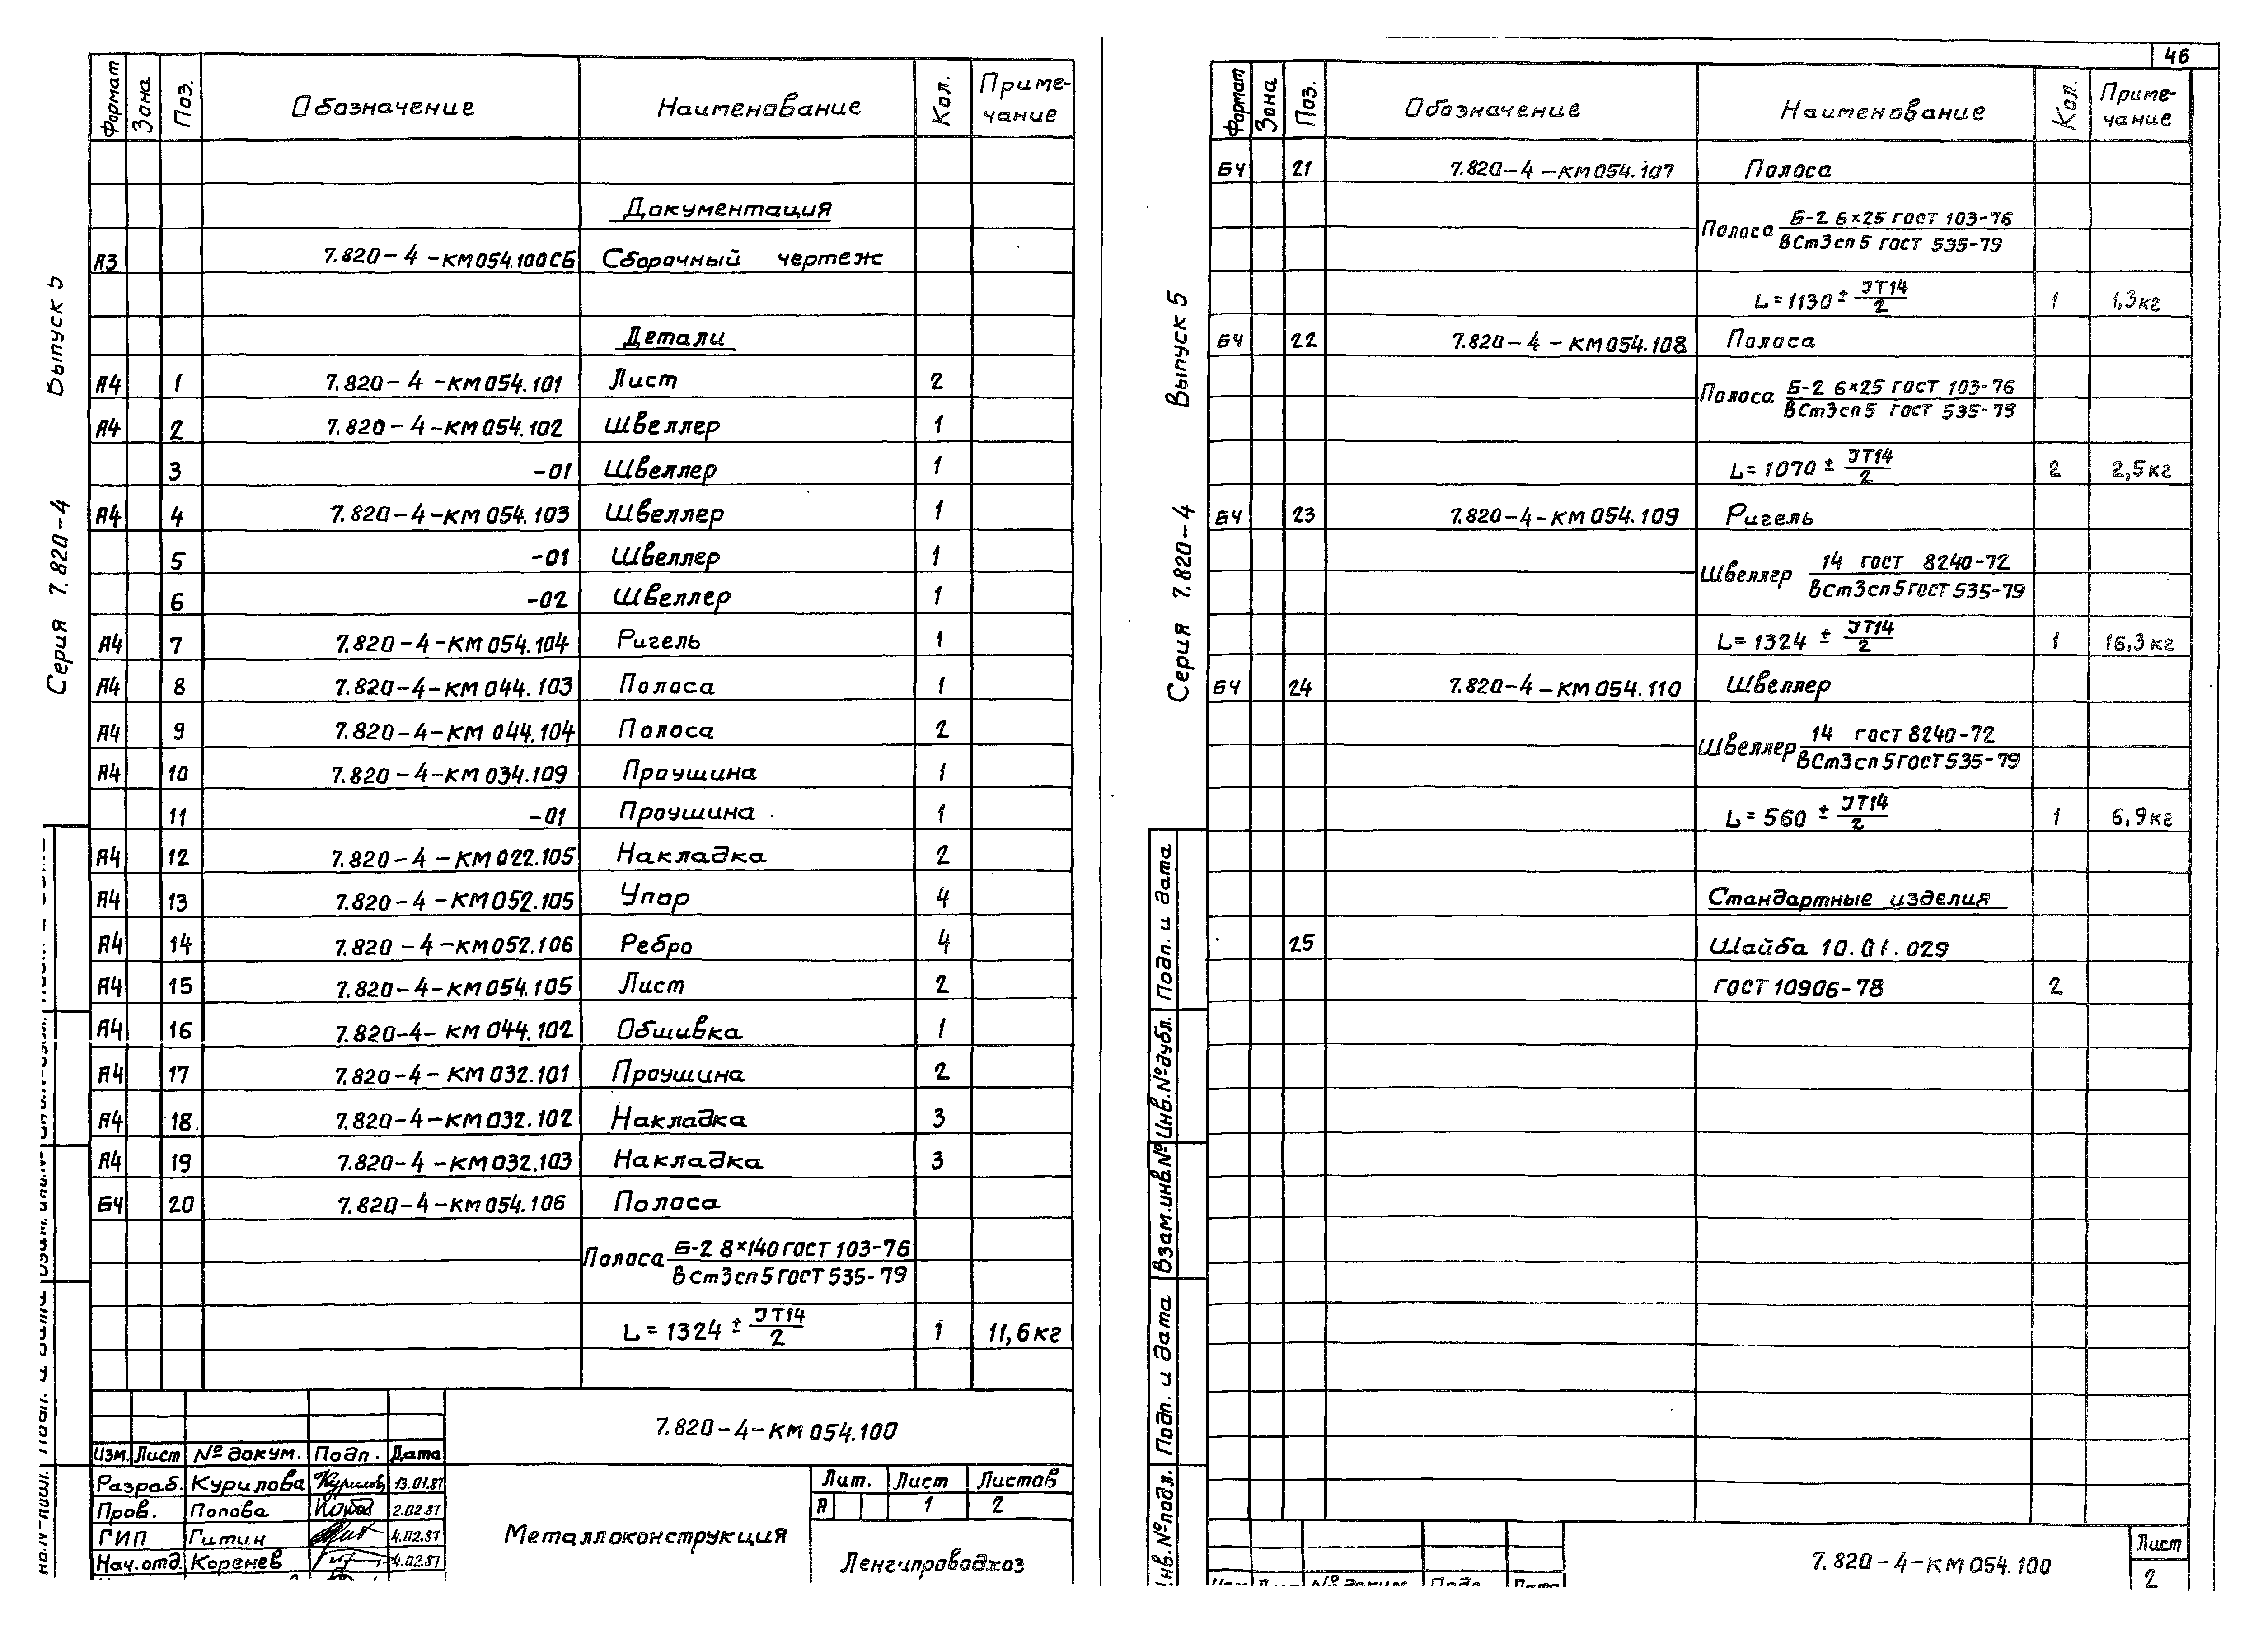 Серия 7.820-4 Выпуск 5
Формат Зона Поз. Обозначение Наименование Кол. Приме-
чание
Документация
А3 7.820-4-КМ054.100СБ Сборочный чертеж
Детали
А4 1 7.820-4-КМ054.101 Лист 2
А4 2 7.820-4-КМ054.102 Швеллер 1
3 -01 Швеллер 1
А4 4 7.820-4-КМ054.103 Швеллер 1
5 -01 Швеллер 1
6 -02 Швеллер 1
А4 7 7.820-4-КМ054.104 Ригель 1
А4 8 7.820-4-КМ044.103 Полоса 1
А4 9 7.820-4-КМ044.104 Полоса 2
А4 10 7.820-4-КМ034.109 Проушина 1
11 -01 Проушина 1
А4 12 7.820-4-КМ022.105 Накладка 2
А4 13 7.820-4-КМ052.105 Упор 4
А4 14 7.820-4-КМ052.106 Ребро 4
А4 15 7.820-4-КМ054.105 Лист 2
А4 16 7.820-4-КМ044.102 Обшивка 1
А4 17 7.820-4-КМ032.101 Проушина 2
А4 18 7.820-4-КМ032.102 Накладка 3
А4 19 7.820-4-КМ032.103 Накладка 3
БЧ 20 7.820-4-КМ054.106 Полоса
Полоса Б-2 8×140 ГОСТ 103-76
ВСт3сп5 ГОСТ 535-79
L=1324 ± JT14/2 1 11,6кг
7.820-4-КМ054.100
Изм. Лист № докум. Подп. Дата
Разраб. Курилова 13.01.87
Пров. Попова 2.02.87
ГИП Гитин 4.02.87
Нач.отд. Коренев 4.02.87
Металлоконструкция
Лит. Лист Листов
А 1 2
Ленгипроводхоз
46
Серия 7.820-4 Выпуск 5
Формат Зона Поз. Обозначение Наименование Кол. Приме-
чание
БЧ 21 7.820-4-КМ054.107 Полоса
Полоса Б-2 6×25 ГОСТ 103-76
ВСт3сп5 ГОСТ 535-79
L=1130 ± JT14/2 1 1,3кг
БЧ 22 7.820-4-КМ054.108 Полоса
Полоса Б-2 6×25 ГОСТ 103-76
ВСт3сп5 ГОСТ 535-79
L=1070 ± JT14/2 2 2,5кг
БЧ 23 7.820-4-КМ054.109 Ригель
Швеллер 14 ГОСТ 8240-72
ВСт3сп5 ГОСТ 535-79
L=1324 ± JT14/2 1 16,3кг
БЧ 24 7.820-4-КМ054.110 Швеллер
Швеллер 14 ГОСТ 8240-72
ВСт3сп5 ГОСТ 535-79
L=560 ± JT14/2 1 6,9кг
Стандартные изделия
25 Шайба 10.01.029
ГОСТ 10906-78 2
Инв.№подл. Подп. и дата Взам.инв.№ Инв.№дубл. Подп. и дата
7.820-4-КМ054.100
Лист
2